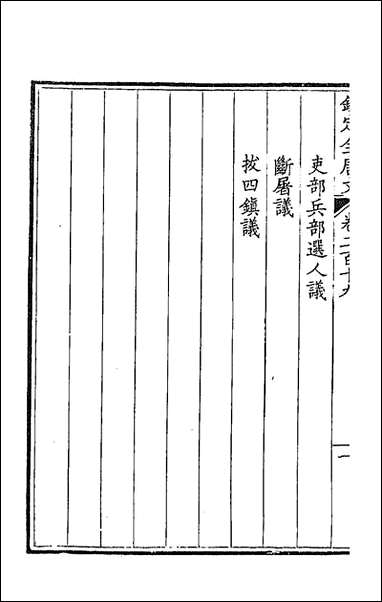 欽定全唐文 卷二百十九 一
吏部兵部選人議
斷屠議
拔四鎮議